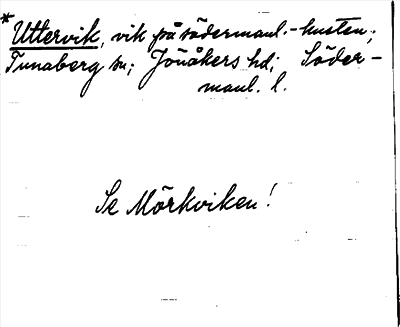 *Uttervik, vik på södermanl.-kusten;
Tunaberg sn; Jönåkers hd; Söder-
manl. l.
Se Mörkviken!